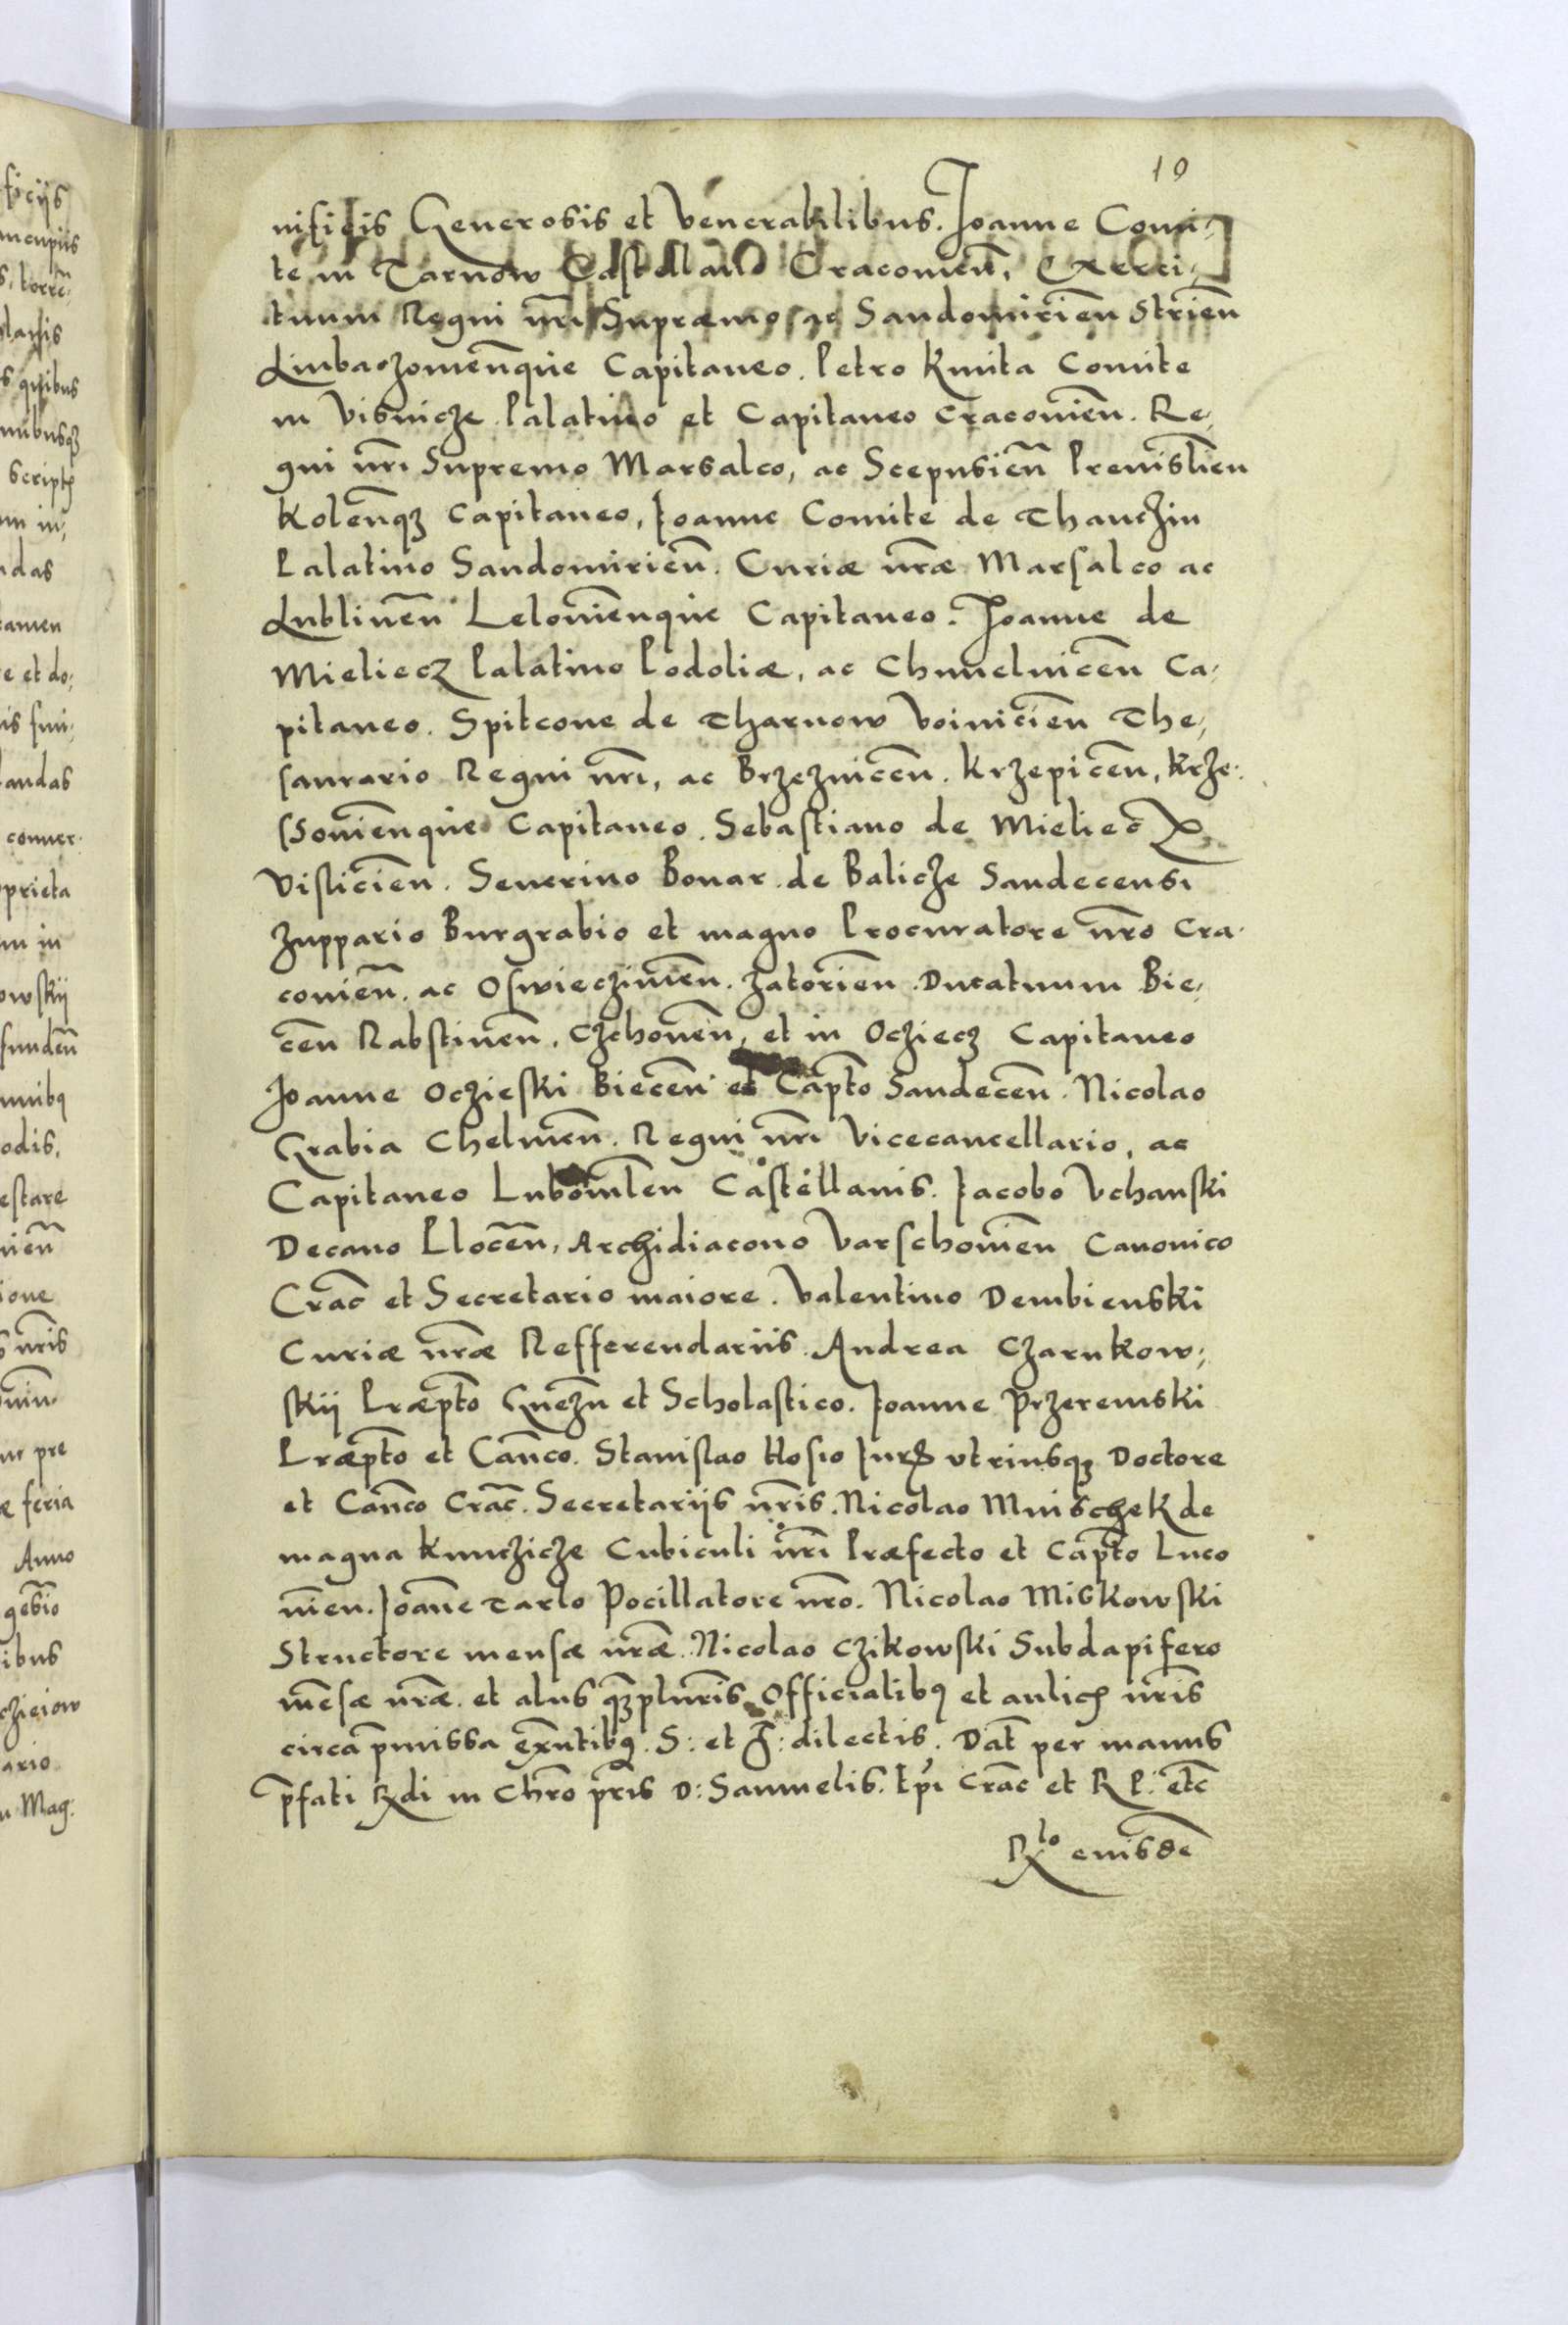 10
nificis Generosis et Venerabilibus. Joanne Comi-
te in Tarnow Castellano Cracouien̄, Exerci-
tuum Regni nr̄i Supremo ac Sandomirien̄ Strien̄
Liubaczouien̄que Capitaneo. Petro Kmita Comite
in Visnicze Palatino et Capitaneo Cracouien̄. Re-
gni nr̄i Supremo Marsalco, ac Scepusien̄ Premislien̄
Kolen̄qꝫ Capitaneo, Joanne Comite de Thanczin
Palatino Sandomirien̄. Curiæ nr̄æ Marsalco ac
Lublinen̄ Lelouien̄que Capitaneo. Joanne de
Mieliecz Palatino Podoliæ, ac Chmelnicen̄ Ca-
pitaneo. Spitcone de Tharnow Voinicien̄ The-
saurario Regni nr̄i, ac Brzeznicen̄. Krzepicen̄, Krze-
ssouien̄que Capitaneo. Sebastiano de Mieliecz
Visticien̄. Seuerino Bonar de Balicze Sandecensi
Zuppario Burgrabio et magno Procuratore nr̄o Cra-
couien̄. ac Oswieczimen̄. Zatorien̄ Ducatuum Bie-
cen̄ Rabstinen̄, Czchouen̄, et in Ocziecz Capitaneo
Joanne Oczieski Biecen̄ et Capt̄o Sandecen̄. Nicolao
Grabia Chelmen̄. Regni nr̄i Vicecancellario, ac
Capitaneo Lubomlen̄ Castellanis. Jacobo Vchanski
Decano Plocen̄, Archidiacono Varschouien̄ Canonico
Crac̄ et Secretario maiore. Valentino Dembienski
Curiæ nr̄æ Refferendariis. Andrea Czarnkow-
skij Præpt̄o Gnezn̄ et Scholastico. Joanne Przerembski
Præpt̄o et Can̄co. Stanislao Hosio Juris vtriusqꝫ Doctore
et Can̄co Crac̄. Secretarijs nr̄is. Nicolao Mnischek de
magna Kunczicze Cubiculi nr̄i Præfecto et Capt̄o Luco
uien. Joan̄e Tarlo Pocillatore nr̄o. Nicolao Miskowski
Structore mensæ nr̄æ. Nicolao Czikowski Subdapifero
mēsæ nr̄æ. et aliis qꝫpluris Officialibꝰ et aulicis nr̄is
circa p̄missa exn̄tibꝰ. S: et F: dilectis. Dat̄ per manus
p̄fati Rx̄di in Chr̄o pr̄is D: Samuelis. Ep̄i Crac̄ et R P: etc̄
Rlo eiusdē